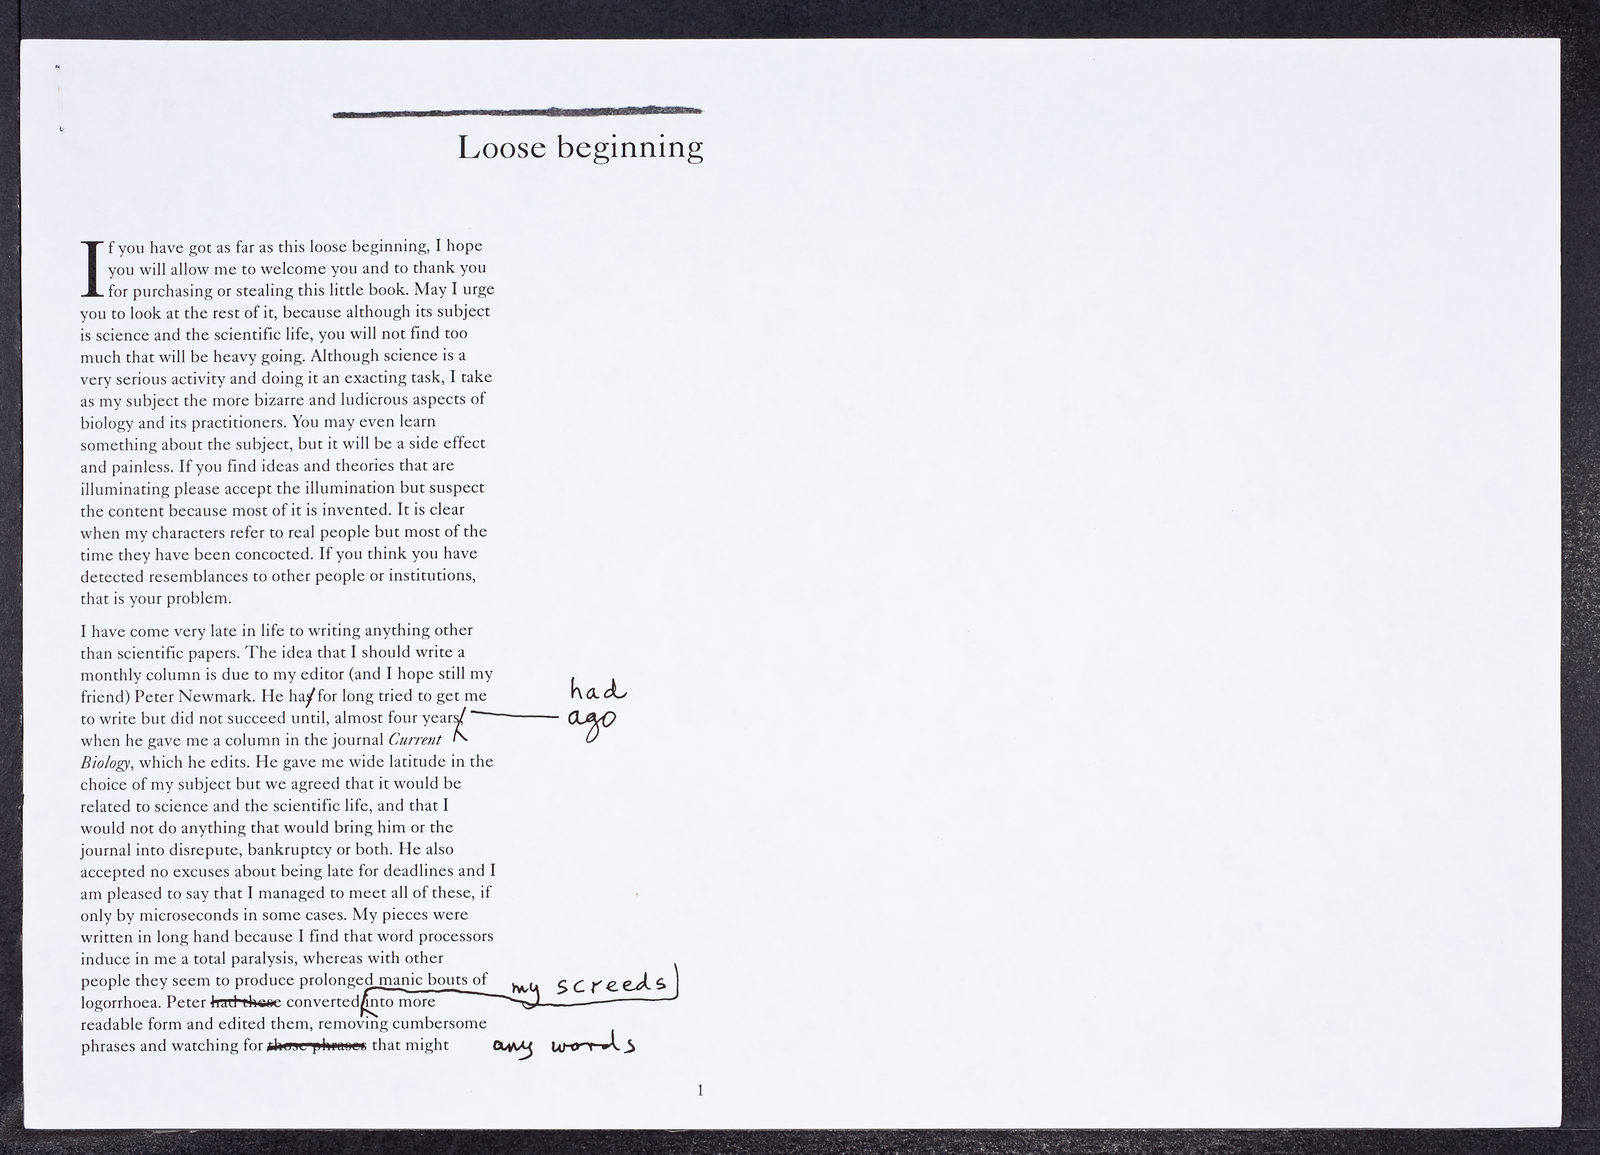 Loose beginning
If you have got as far as this loose beginning, I hope
you will allow me to welcome you and to thank you
for purchasing or stealing this little book. May I urge
you to look at the rest of it, because although its subject
is science and the scientific life, you will not find too
much that will be heavy going. Although science is a
very serious activity and doing it an exacting task, I take
as my subject the more bizarre and ludicrous aspects of
biology and its practitioners. You may even learn
something about the subject, but it will be a side effect
and painless. If you find ideas and theories that are
illuminating please accept the illumination but suspect
the content because most of it is invented. It is clear
when my characters refer to real people but most of the
time they have been concocted. If you think you have
detected resemblances to other people or institutions,
that is your problem.
I have come very late in life to writing anything other
than scientific papers. The idea that I should write a
monthly column is due to my editor (and I hope still my
friend) Peter Newmark. He has for long tried to get me
had
to write but did not succeed until, almost four years,
ago
when he gave me a column in the journal Current
Biology, which he edits. He gave me wide latitude in the
choice of my subject but we agreed that it would be
related to science and the scientific life, and that I
would not do anything that would bring him or the
journal into disrepute, bankruptcy or both. He also
accepted no excuses about being late for deadlines and I
am pleased to say that I managed to meet all of these, if
only by microseconds in some cases. My pieces were
written in long hand because I find that word processors
induce in me a total paralysis, whereas with other
people they seem to produce prolonged manic bouts of
my screeds
logorrhoea. Peter had these converted into more
readable form and edited them, removing cumbersome
phrases and watching for those phrases that might
any words
1